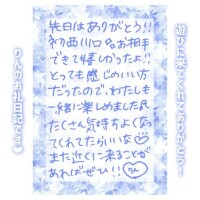 遊びに来てくれてありがとう!
先日はありがとう!!
初西川口のお相手
できて嬉しかったよ!!
とっても感じのいい方
だったので、わたしも
一緒に楽しめました
たくさん気持ちよくな
ってくれてたらいいな♡
また近くに来ることが
あればぜひ!!♡
りんのお礼日記です♥